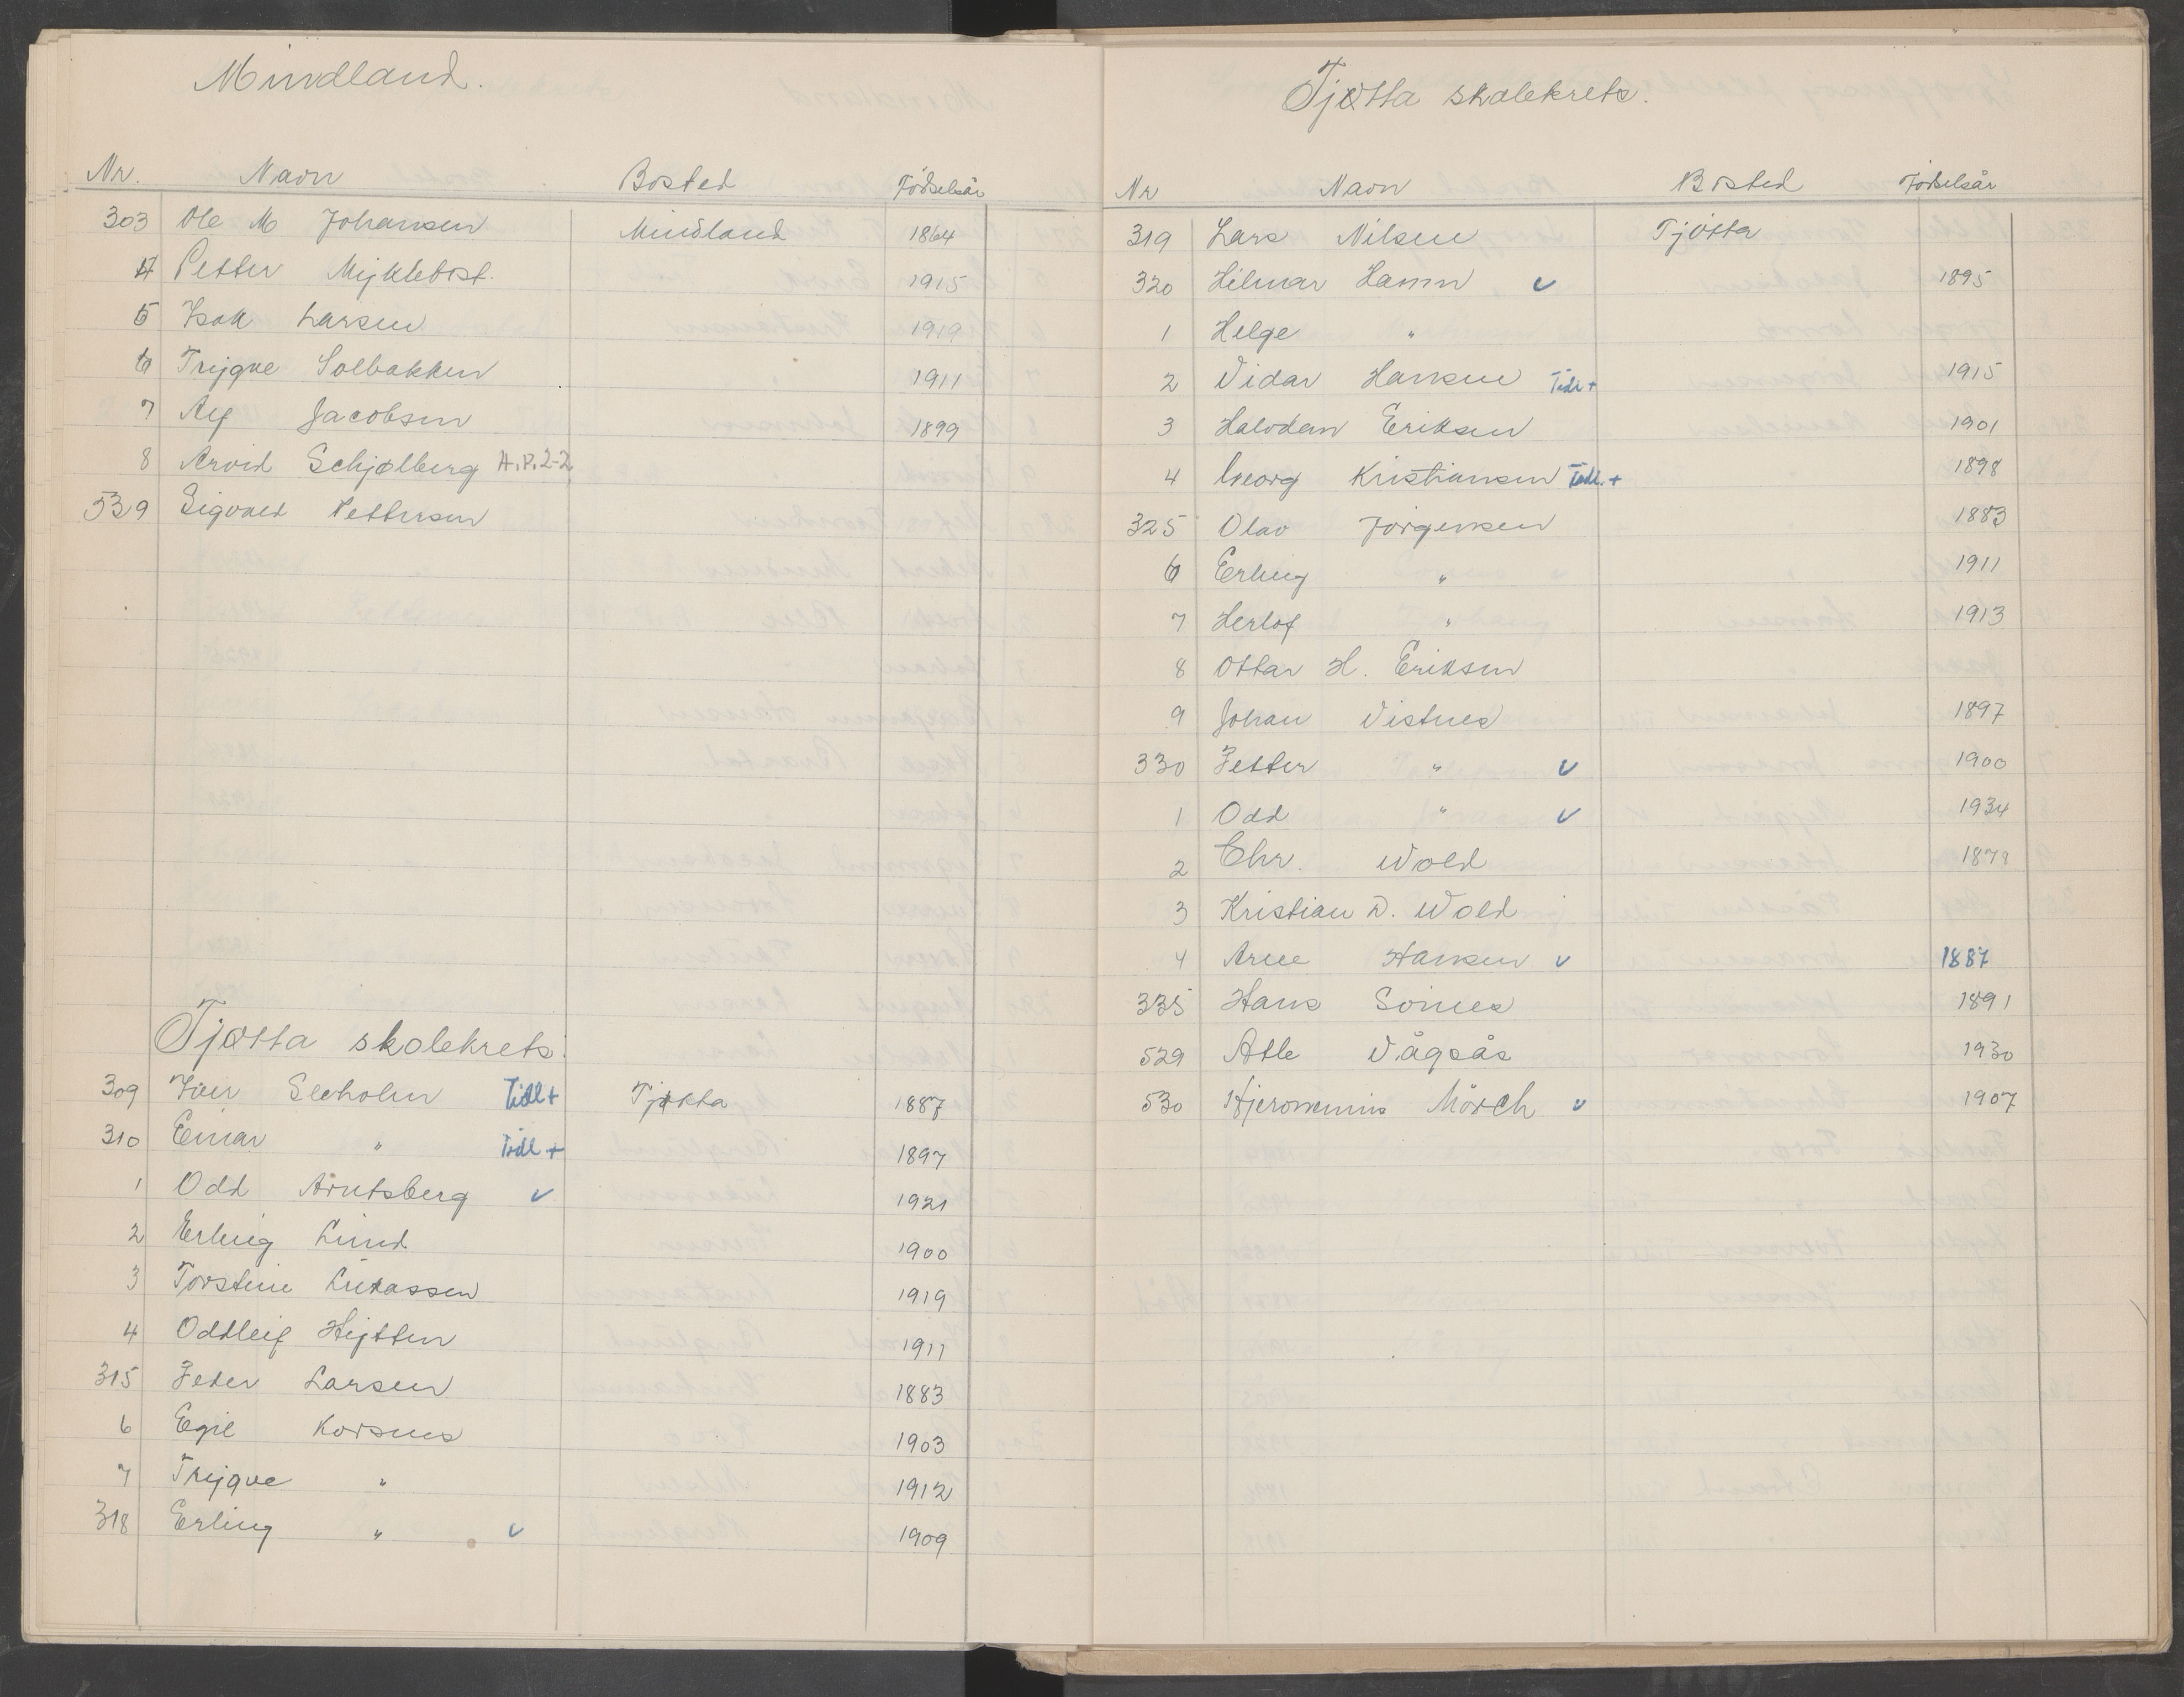 Mindland.
Nr. Navn Bosted Fødselsår
303 Ole M Johansen Mindland 1864
4 Petter Myklebost. 1915
5 Isak Larsen 1919
6 Trygve Solbakken 1911
7 Alf Jacobsen 1899
8 Arvid Schjølberg A.P. 2-2
539 Sigvald Pettersen
Tjøtta skolekrets.
309 Iver Seeholm Tidl+ Tjøtta 1887
310 Einar " Tidl+ 1897
1 Odd Arntsberg v 1921
2 Erling Lund 1900
3 Torstein Lukassen 1919
4 Oddleif Hejtten 1911
315 Peder Larsen 1883
6 Egil Korsnes 1903
7 Trygve " 1912
318 Erling " v 1909
Tjøtta skolekrets.
Nr Navn Bosted Fødselsår
319 Lars Nilsen Tjötta
320 Hilmar Hamn v 1895
1 Helge "
2 Vidar Hansen Tidl+ 1915
3 Halvdan Eriksen 1901
4 Georg Kristiansen Tidl.+ 1898
325 Olav Jörgensen 1883
6 Erling " 1911
7 Herlof " 1913
8 Ottar H. Eriksen
9 Johan Vistnes 1897
330 Petter " v 1900
1 Odd " v 1934
2 Chr. Wold 1878
3 Kristian D. Wold
4 Arne Hansen v 1887
335 Hans Sörnes 1891
529 Atle Vågsås 1930
530 Hjeronimus Mörch v 1907